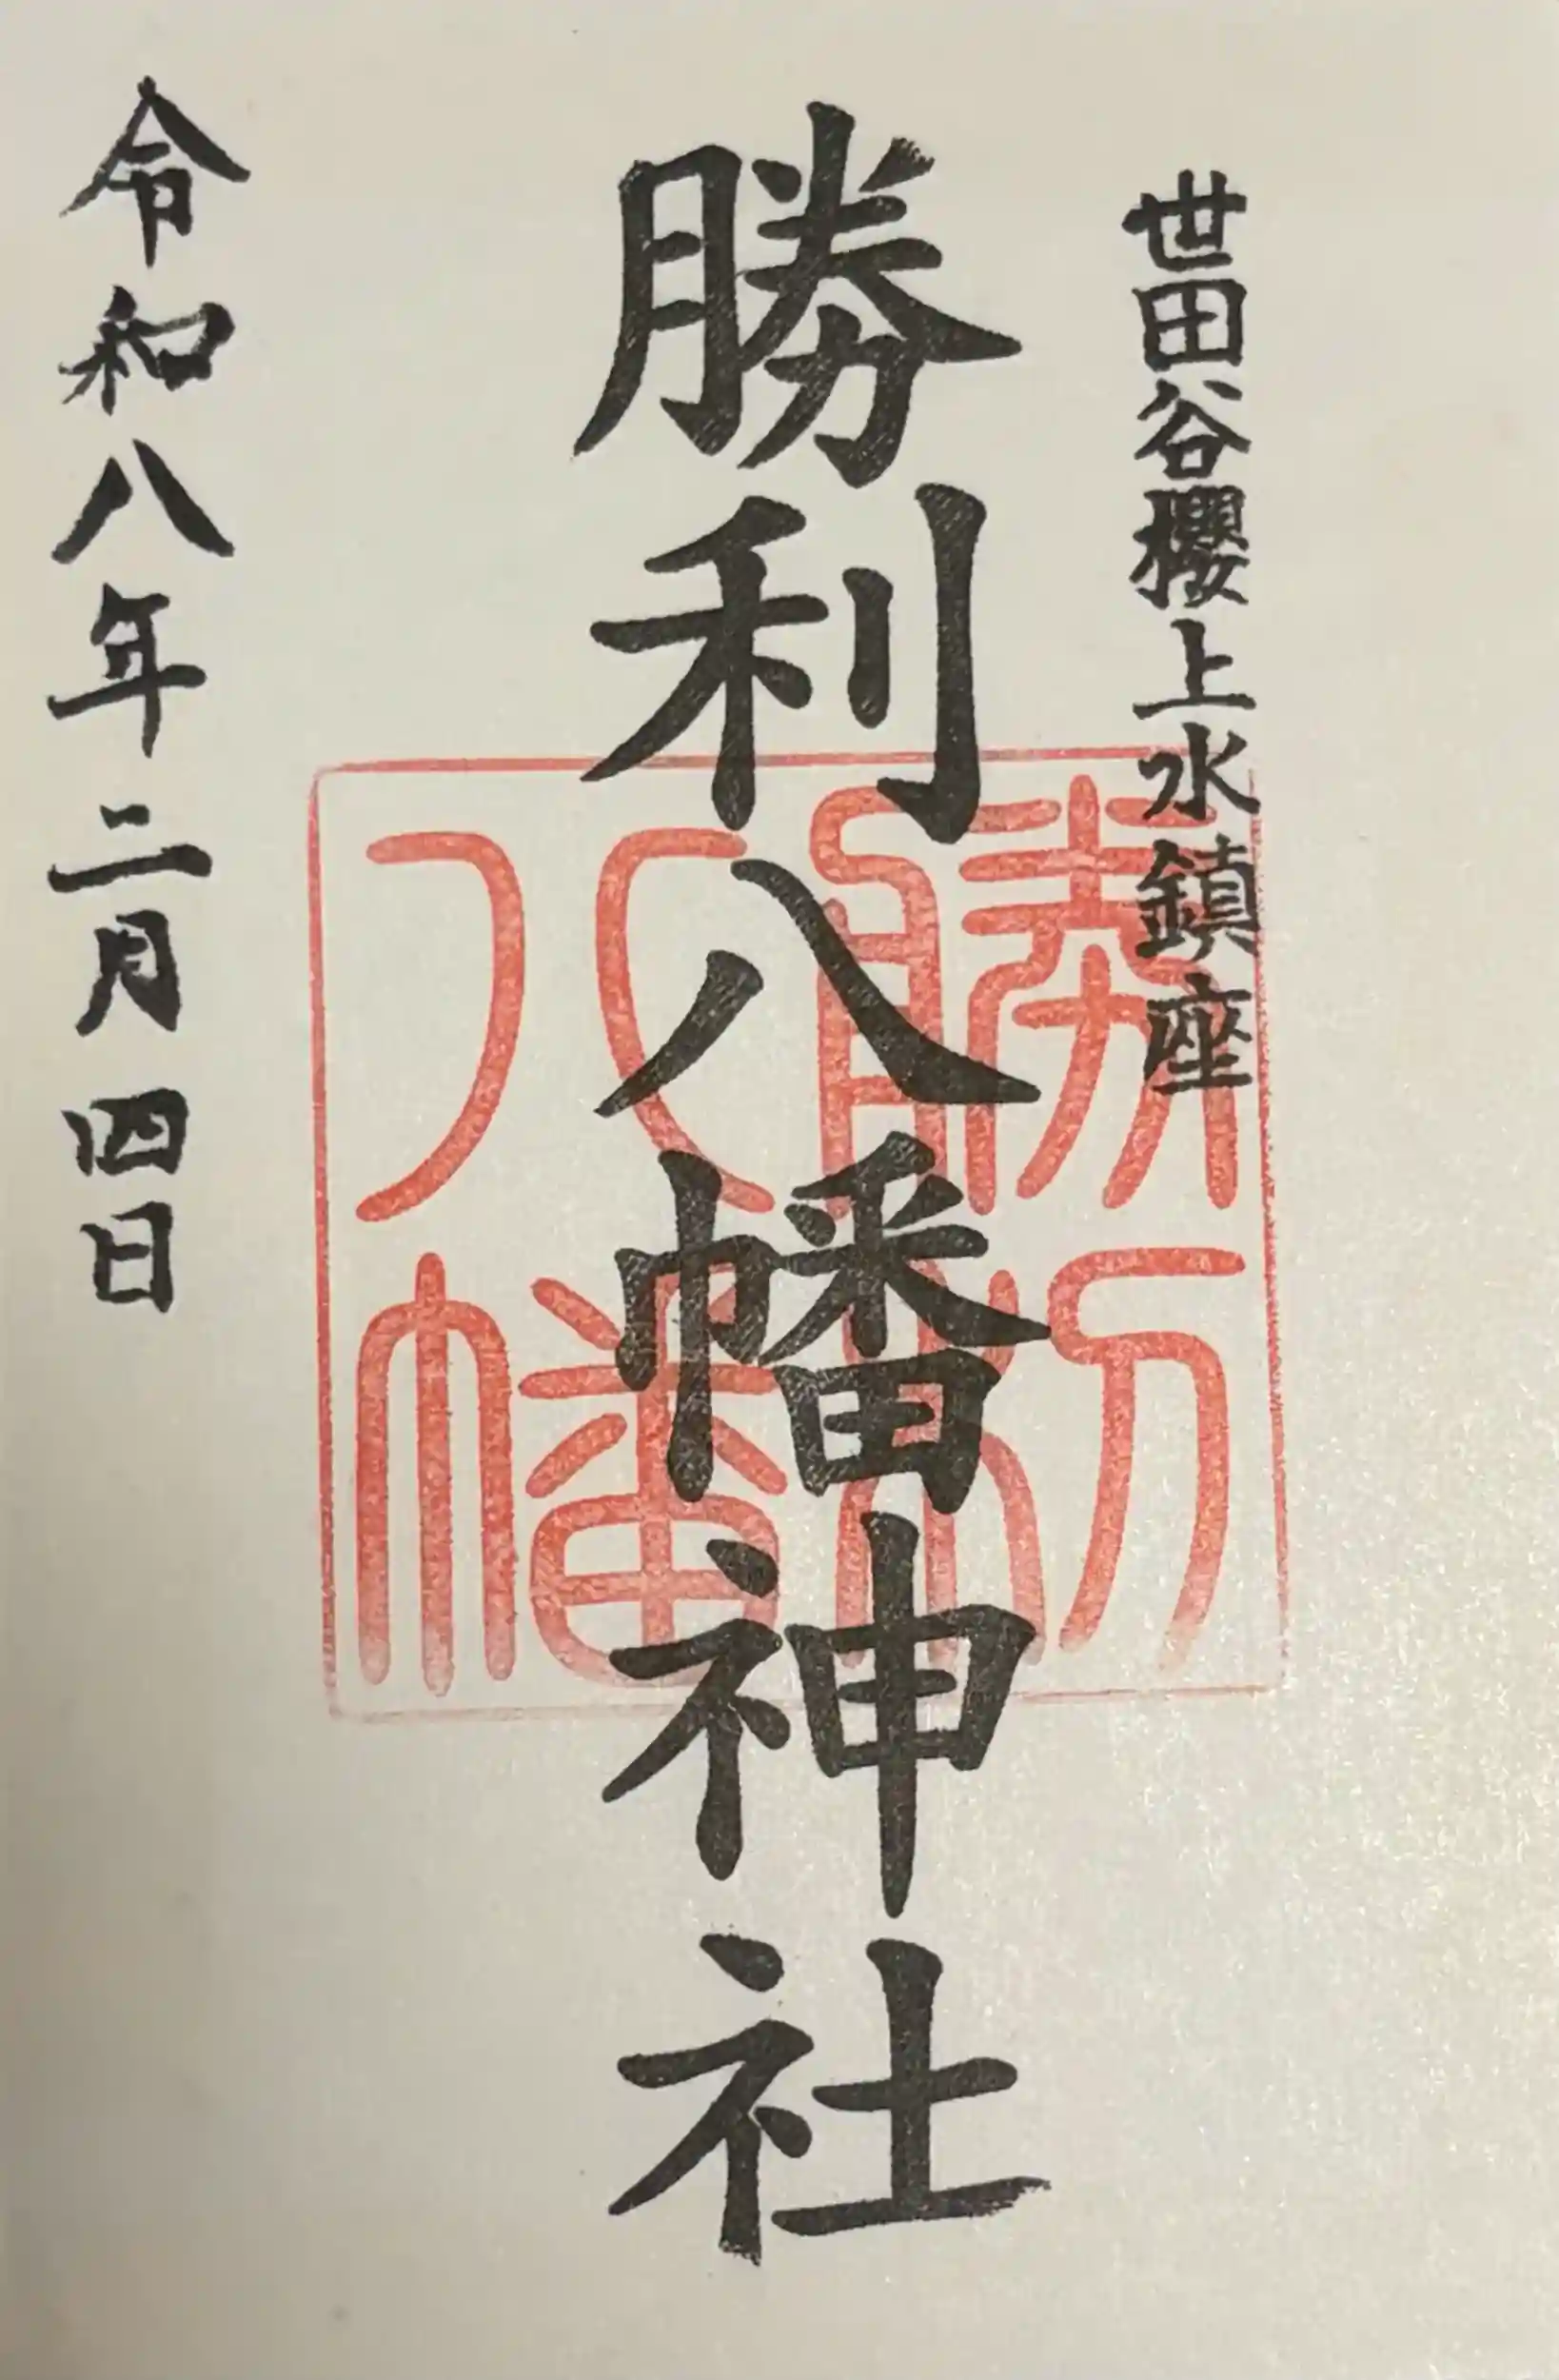 世田谷櫻上水鎮座
勝利八幡神社
勝利八幡
令和八年二月四日